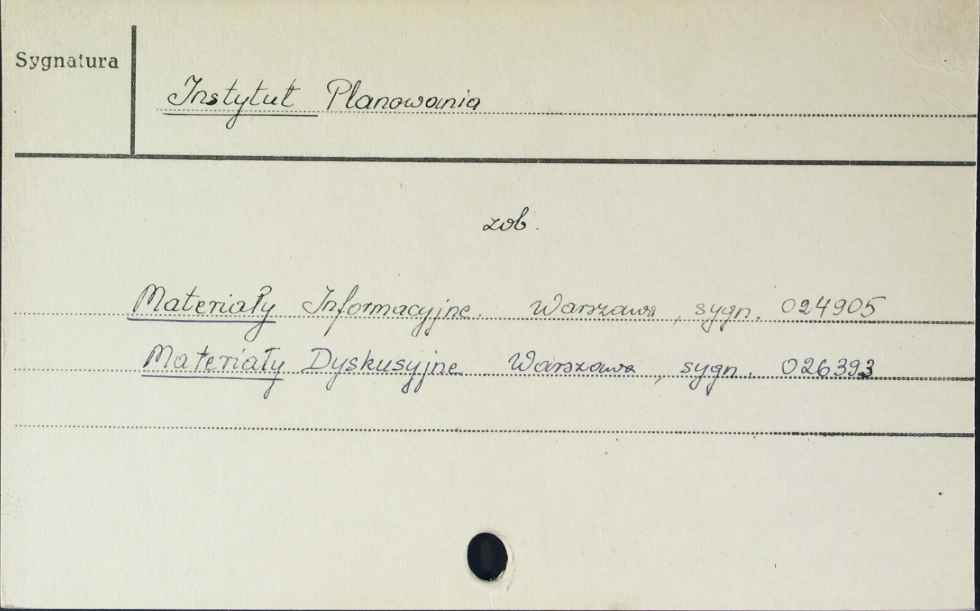 Sygnatura
Instytut Planowania
zob.
Materiały Informacyjne. Warszawa, sygn. 024905
Materiały Dyskusyjne. Warszawa, sygn. 026393